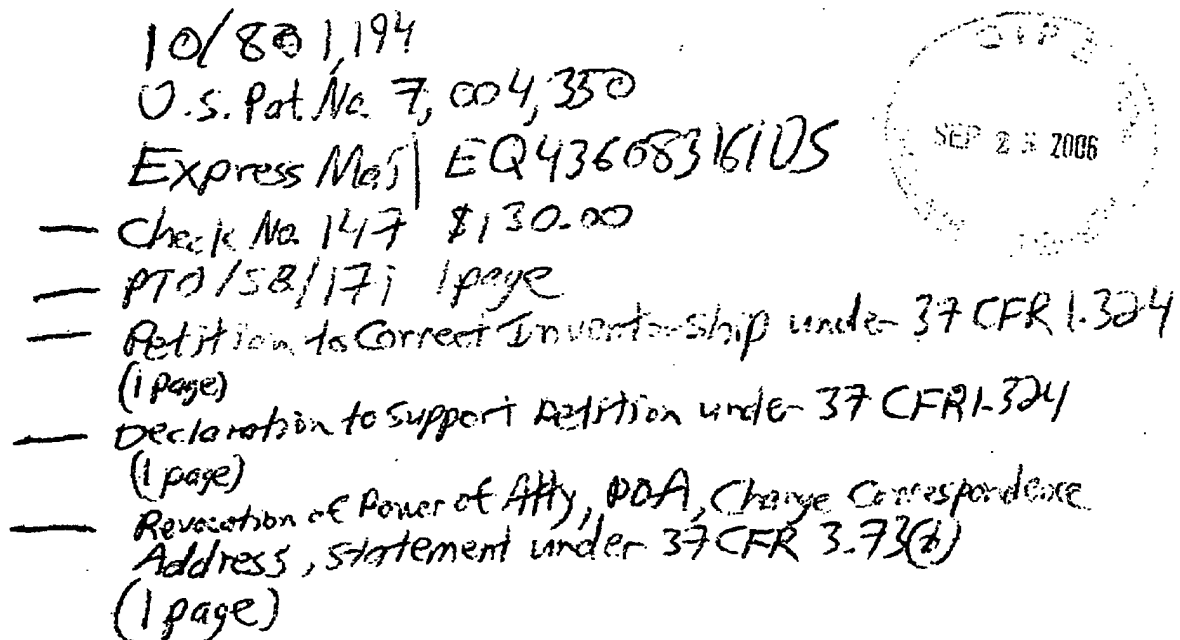 10/801,194
U.S. Pat. No. 7,004,350
Express Mail EQ436083161US
OIPE
SEP 2 2006
— Check No. 147 $130.00
— PTO/SB/17i 1page
— Petition to Correct Inventorship under 37 CFR 1.324
(1 page)
— Declaration to Support Petition under 37 CFR 1.324
(1 page)
— Revocation of Power of Atty, POA, Change Correspondence
Address, Statement under 37 CFR 3.73(b)
(1 page)